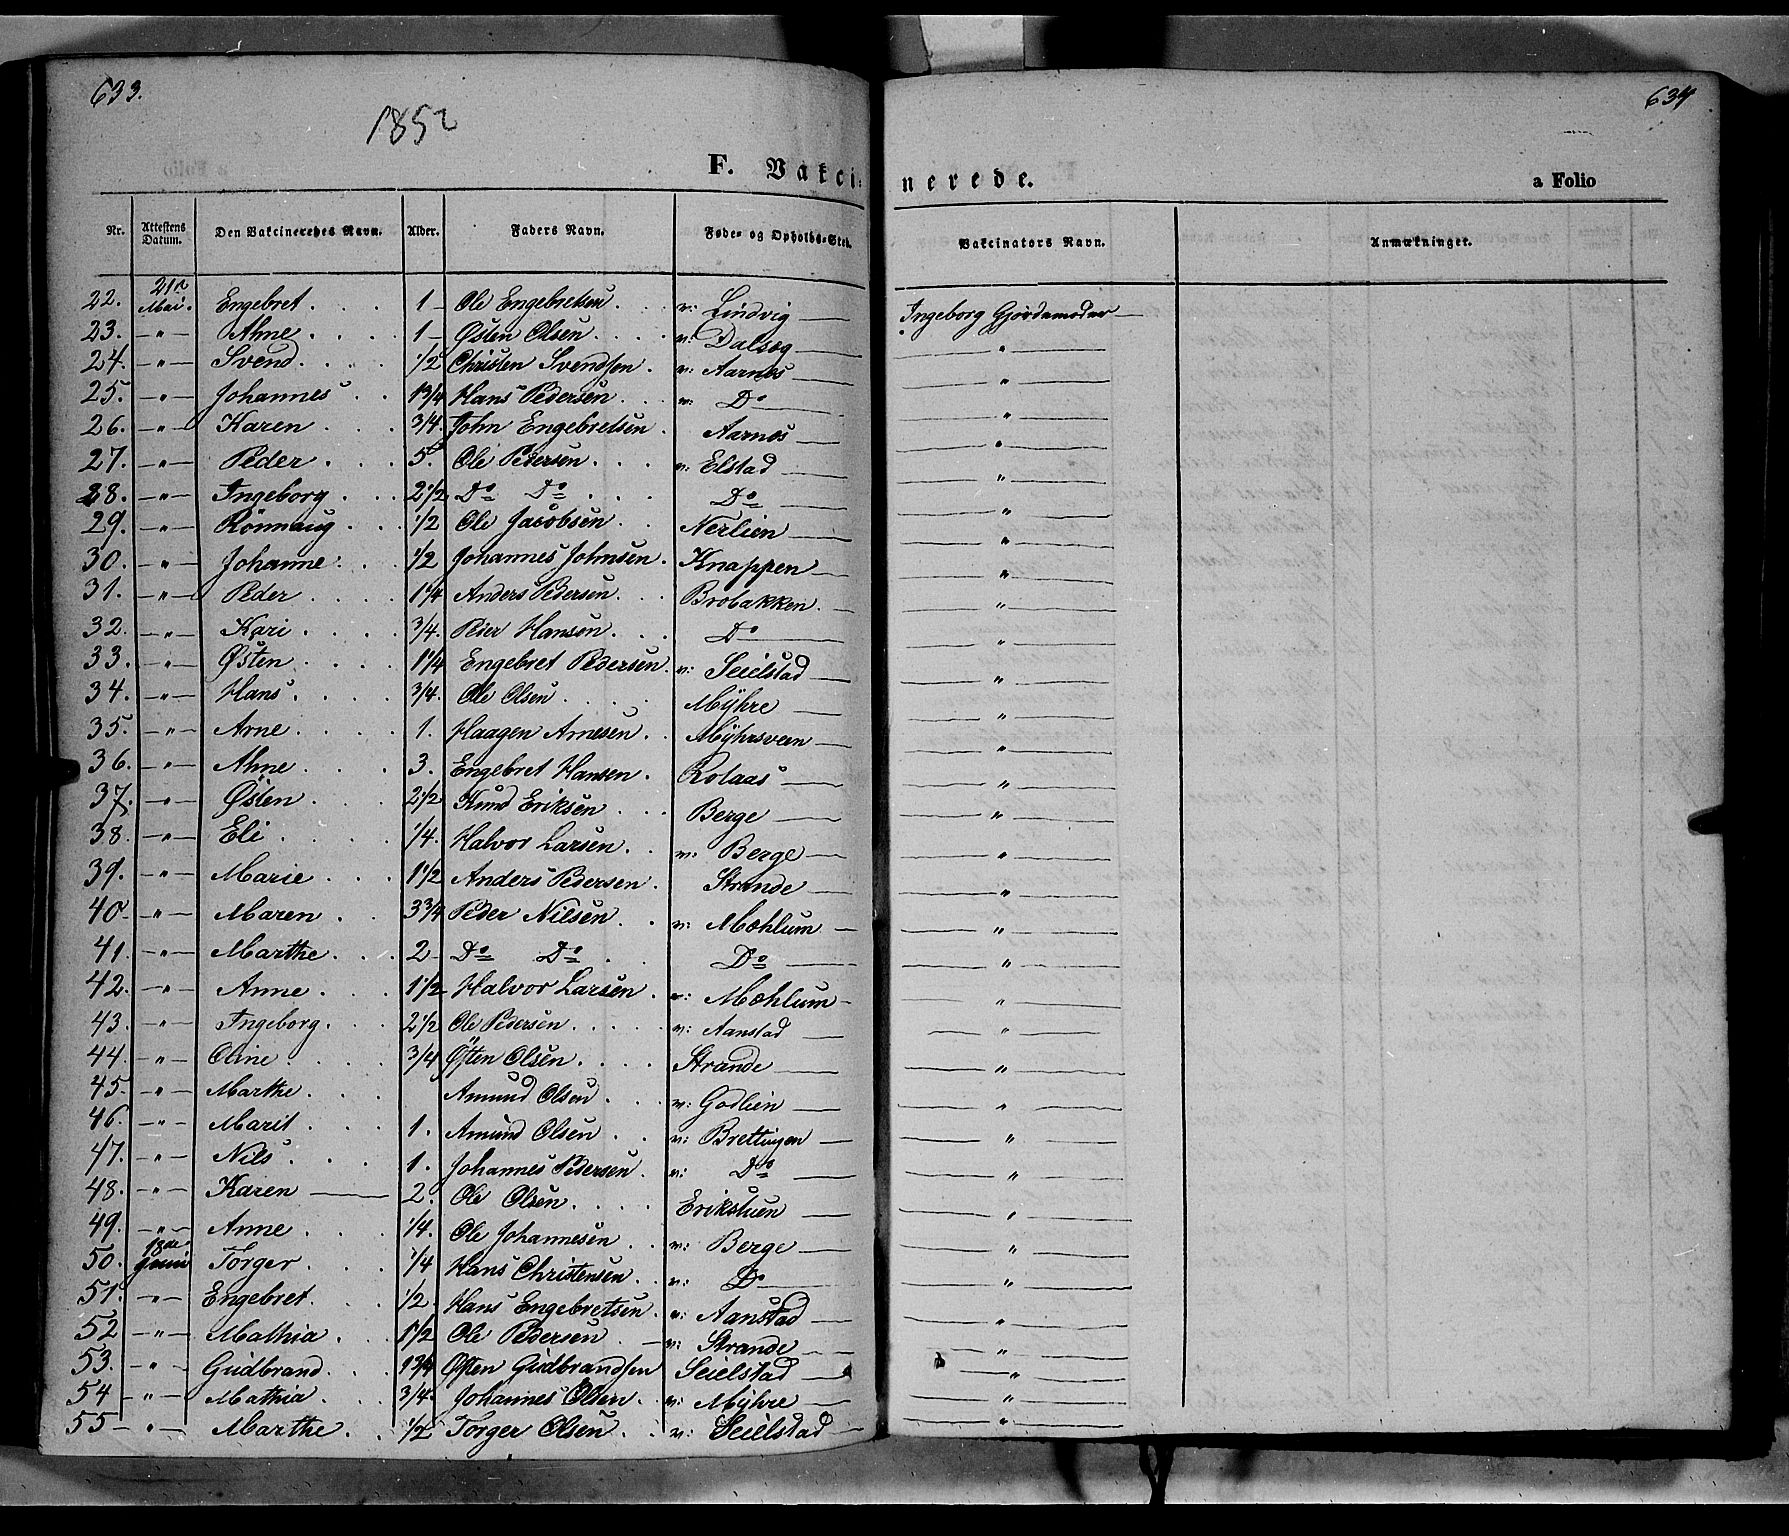 633.
634
1852
F. Vakcinerede.
a Folio
Nr. Attestens Datum. Den Vakcineredes Navn. Alder. Faders Navn. Føde- og Opholds-Sted. Vakcinators Navn. Anmærkninger.
22. 21de Mai. Engebret . . . 1 - Ole Engebretsen . . v: Lindvig — Ingeborg Gjordemoder —
23. —"— Ahne . . . . 1 - Østen Olsen . . . . v: Dalseg — — " —
24. —"— Svend . . . . 1/2 Christen Svendsen . v: Aarnes — — " —
25. —"— Johannes . . 1 3/4 Hans Pedersen . . . v: Do — — " —
26. —"— Karen . . . 3/4. John Engebretsen . Aarnes — — " —
27. —"— Peder . . . 5. Ole Pedersen . . . v: Elstad — — " —
28. —"— Ingeborg . . . 2 1/2 Do Do . . . Do — — " —
29. —"— Rönnaug . . . 1/2 Ole Jacobsen . . Nerlien — — " —
30. —"— Johanne . . . 1/2 Johannes Johnsen . Knappen — — " —
31. —"— Peder . . . . 1 1/4 Anders Pedersen . . . Brobakken . — — " —
32. —"— Kari . . . . 3/4. Peder Hansen . . . Do — — " —
33. —"— Østen . . . . 1 1/4 Engebret Pedersen . v: Seielstad — — " —
34. —"— Hans . . . . 3/4. Ole Olsen . . . . . Mÿhre — — " —
35. —"— Arne . . . . 1. Haagen Arnesen . . Mÿhrsveen — — " —
36. —"— Ahne . . . 3. Engebret Hansen . Rolaas — — " —
37. —"— Østen . . . . 2 1/2 Knud Eriksen . . . Berge — — " —
38. —"— Eli . . . . 1/4. Halvor Larsen . . v: Berge — — " —
39. —"— Marie . . . 1 1/2 Anders Pedersen . Strande — — " —
40. —"— Maren . . 3 3/4 Peder Nilsen . . v: Mæhlum — — " —
41. —"— Marthe . . . 2 - Do Do . . Do — — " —
42. —"— Anne . . . 1 1/2 Halvor Larsen . v: Mæhlum — — " —
43. —"— Ingeborg . . . 2 1/2 Ole Pedersen . . . . . v: Aanstad — — " —
44. —"— Oline . . . . 3/4 Østen Olsen . . . . Strande — — " —
45. —"— Marthe . . . Amund Olsen . . . v: Godlien — — " —
46. —"— Marit . . . 1. Amund Olsen . . v: Brettingen — — " —
47. —"— Nils . . . 1. Johannes Pedersen . v: Do — — " —
48. —"— Karen — 2. Ole Olsen . . . . Erikstuen — — " —
49. —"— Anne . . . 1/4. Ole Johannesen . . v: Berge — — " —
50. 18de Juni Torger . . . 1/4 Hans Christensen . v: Do — — " —
51. —"— Engebret . . . 1/2. Hans Engebretsen . v: Aanstad — — " —
52 —"— Mathia . . . 1 1/2 Ole Pedersen . — v: Strande — — " —
53. —"— Gudbrand . . . 1 3/4 Østen Gudbrandsen Seielstad — — " —
54 —"— Mathia . . . 3/4. Johannes Olsen . . v: Mÿhre — — " —
55 — " — Marthe . . 1/2 Torger Olsen . . v: Seielstad — — " —